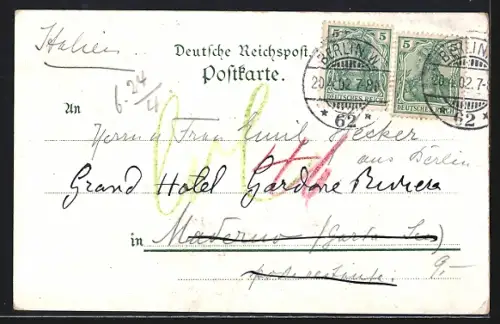 Italien
Deutsche Reichspost
Postkarte.
5 5
DEUTSCHES REICH DEUTSCHES REICH
BERLIN. W. 7-8 * 62 *
BERLIN. W. 02.7- * 62 *
6. 24/4
An
Herrn u Frau Emil Hecker
aus Berlin
Grand Hotel Gardone Riviera
in Maderno (Garda See)
9,-